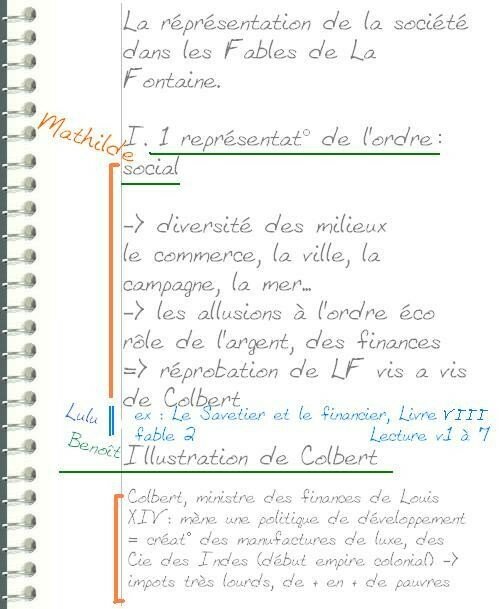 La réprésentation de la société
dans les Fables de La
Fontaine.
Mathilde
I. 1 représentat° de l'ordre :
social
-> diversité des milieux
le commerce, la ville, la
campagne, la mer...
-> les allusions à l'ordre éco
rôle de l'argent, des finances
=> réprobation de LF vis a vis
de Colbert
Lulu ex : Le Savetier et le financier, Livre VIII
fable 2 Lecture v1 à 7
Benoît Illustration de Colbert
Colbert, ministre des finances de Louis
XIV : mène une politique de développement
= créat° des manufactures de luxe, des
Cie des Indes (début empire colonial) ->
impots très lourds, de + en + de pauvres